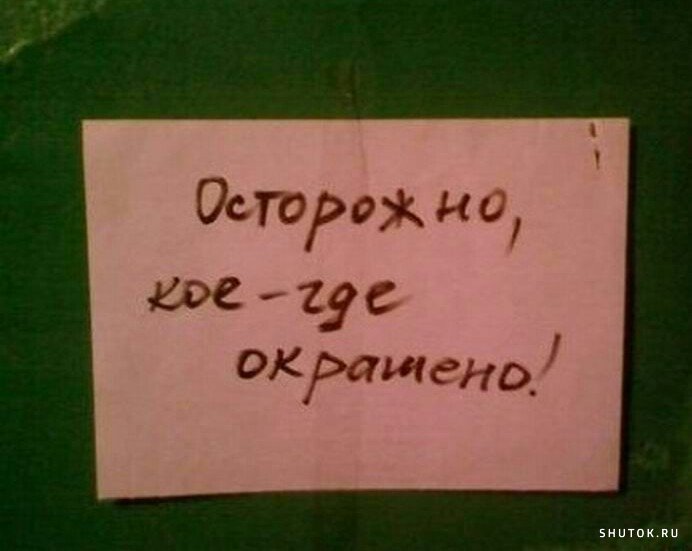 Осторожно,
кое-где
окрашено!
SHUTOK.RU